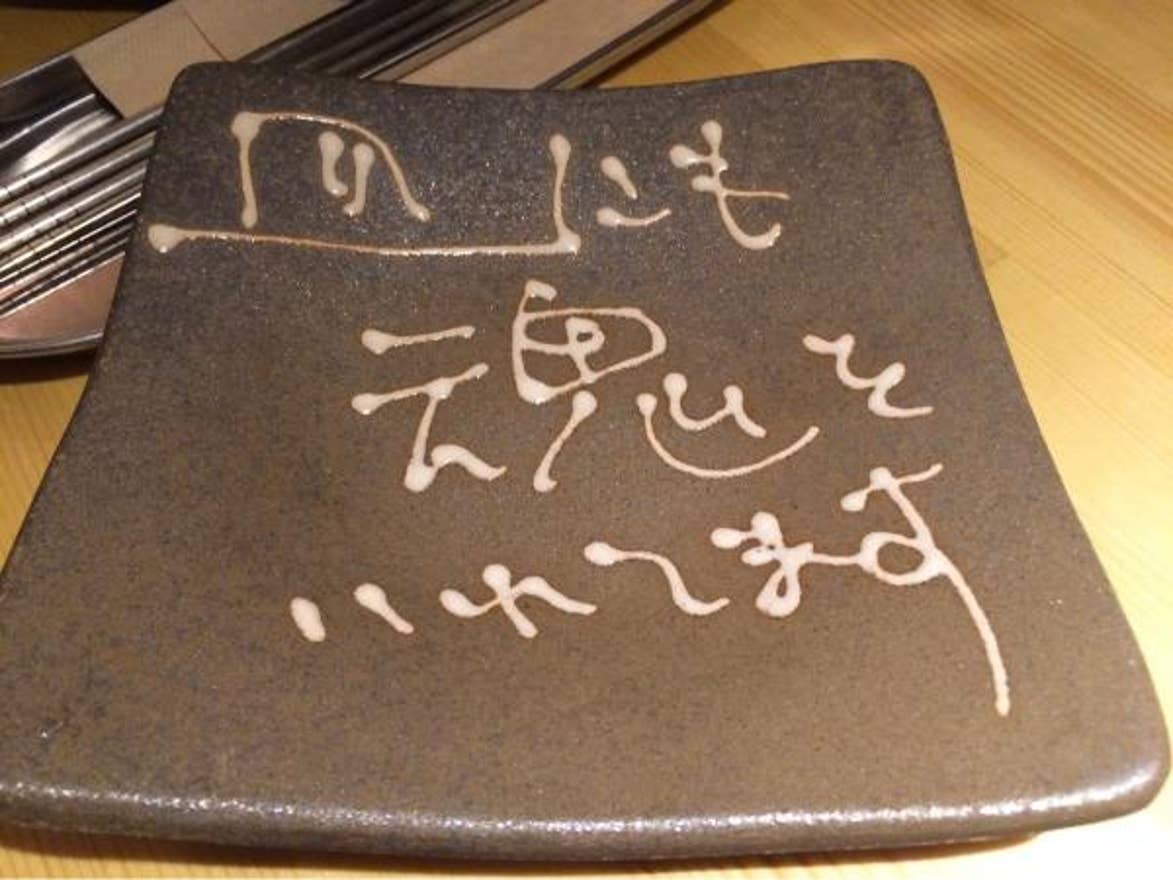 皿にも
魂を
いれてます